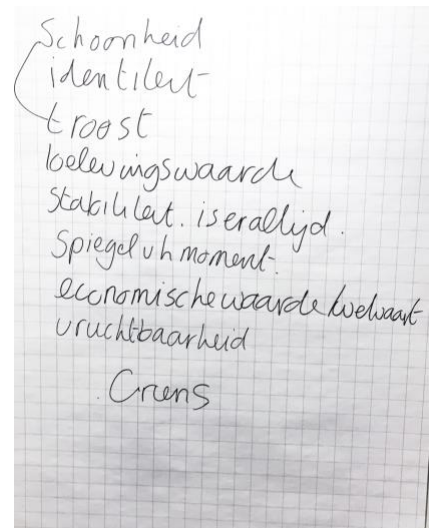 Schoonheid
identiteit
troost
belevingswaarde
stabiliteit. is er altijd.
Spiegel vh moment.
economische waarde/welvaart
vruchtbaarheid
Grens